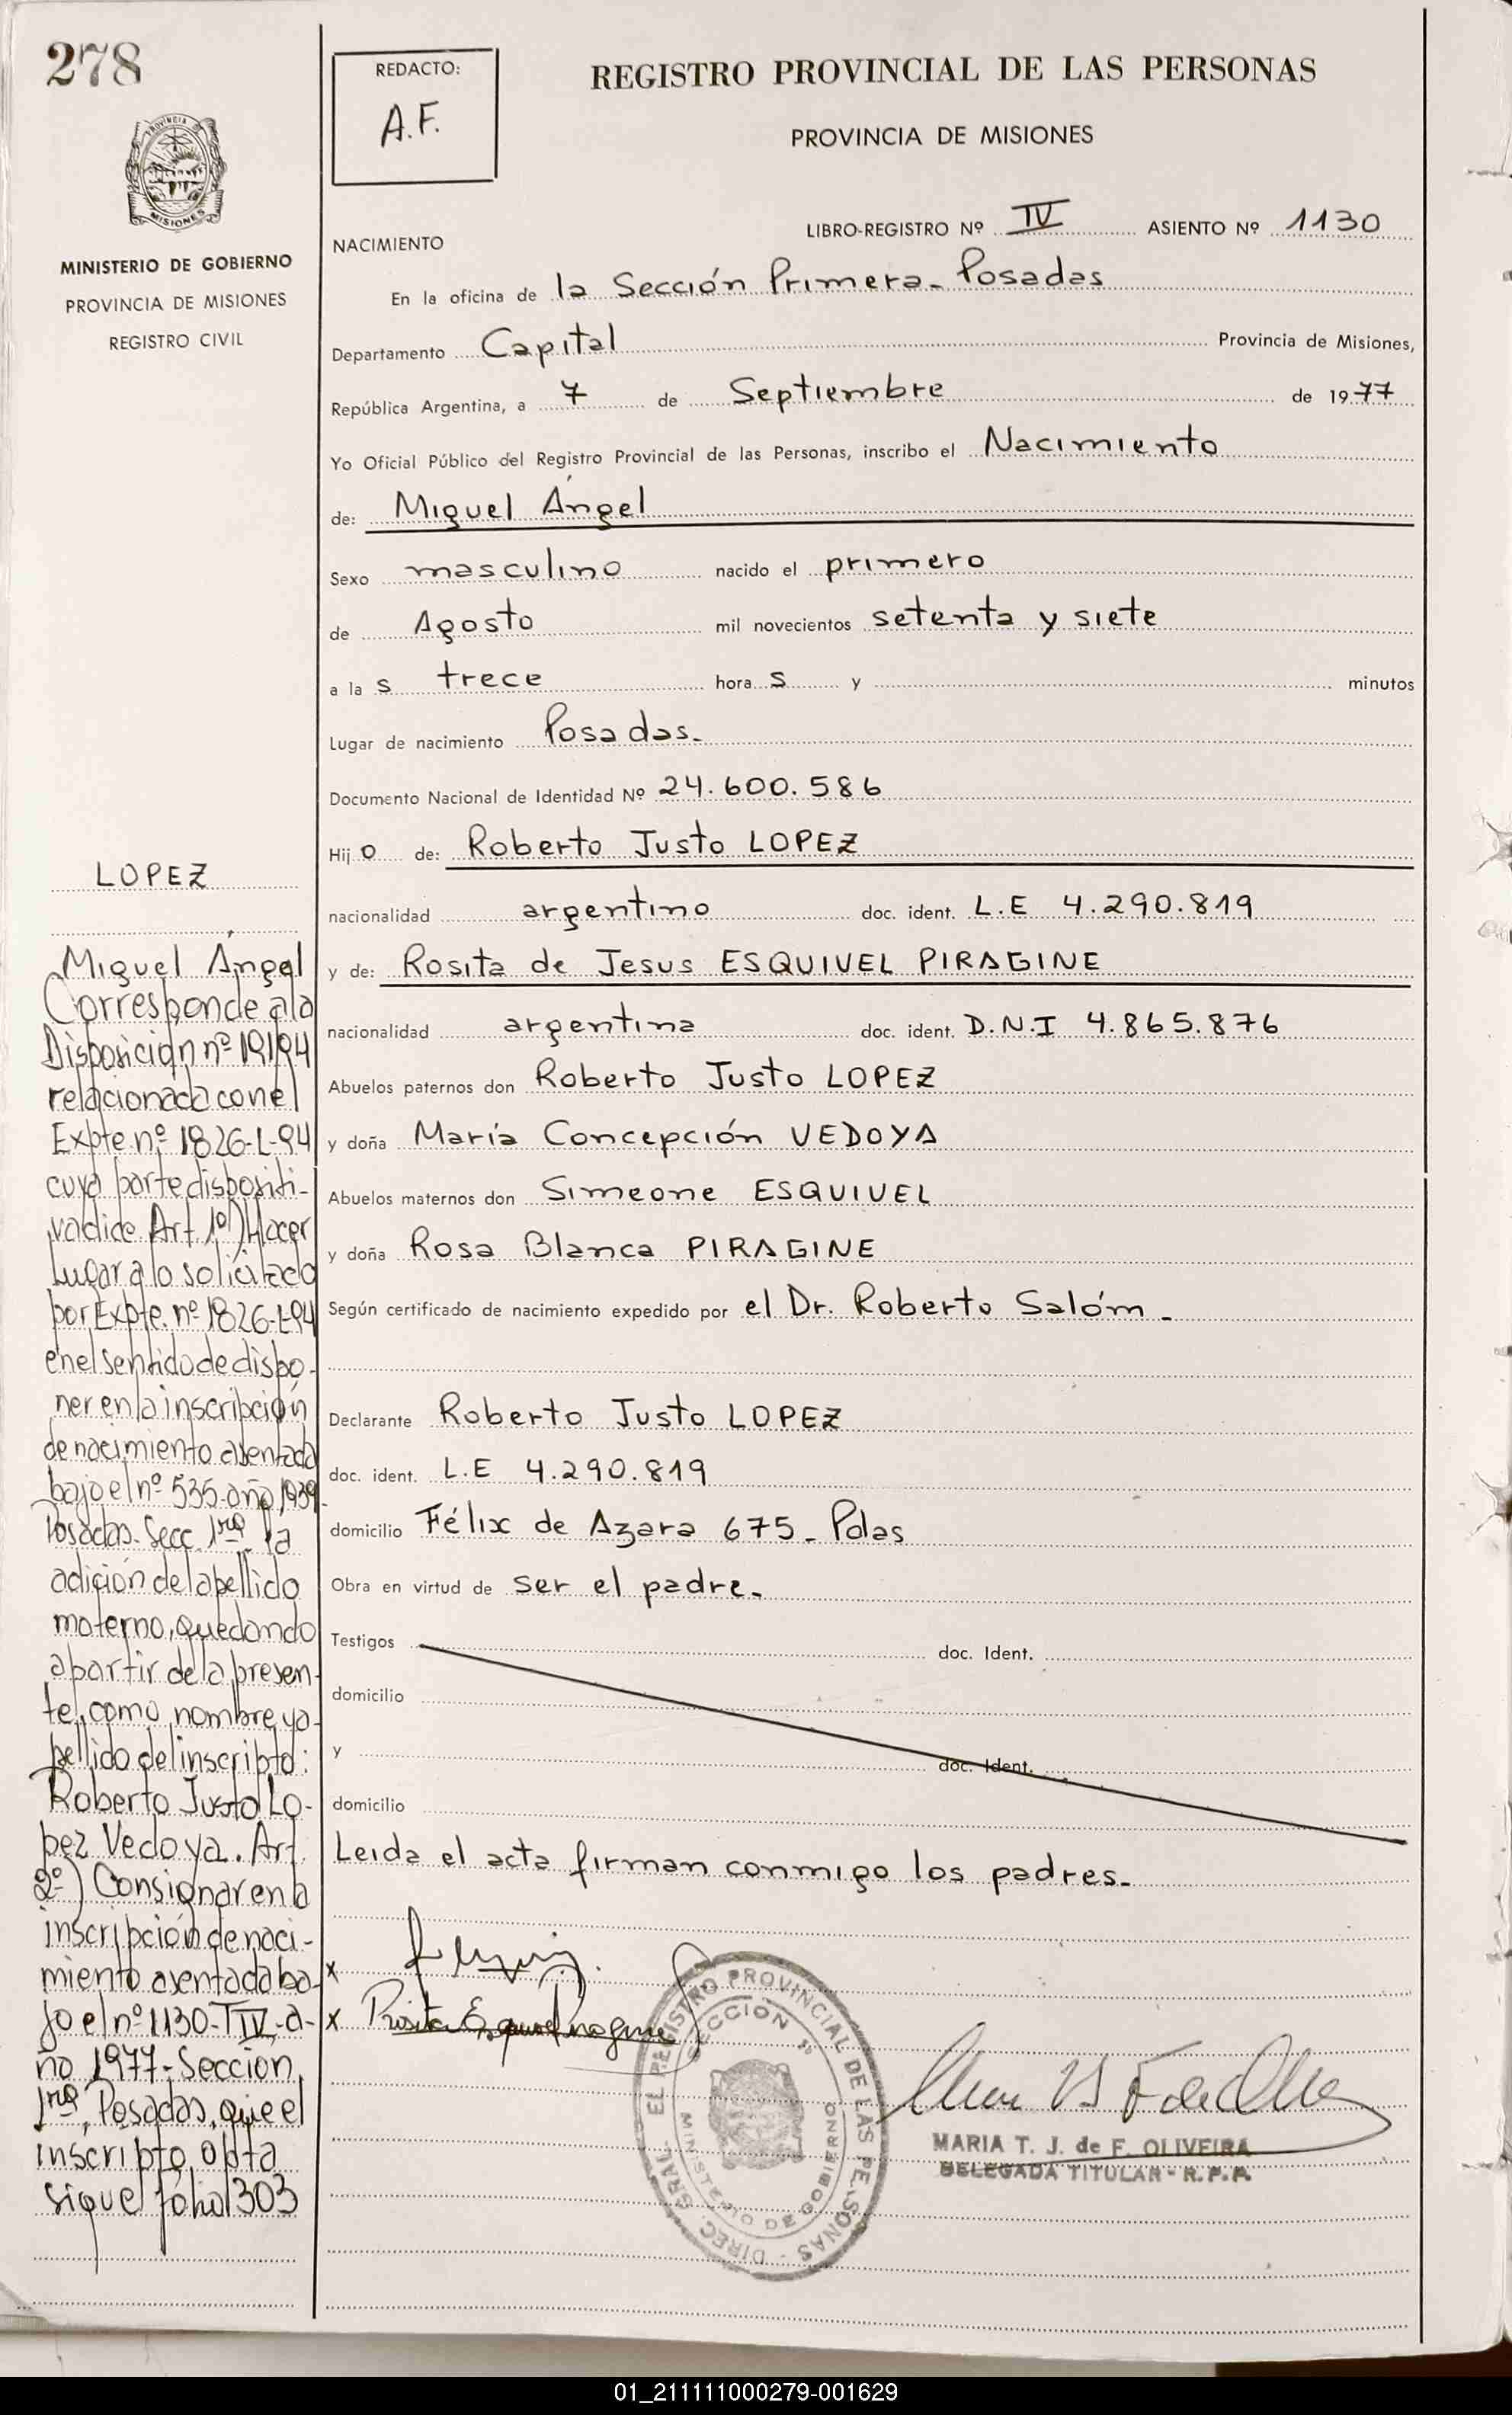 278
REDACTO:
A.F.
REGISTRO PROVINCIAL DE LAS PERSONAS
PROVINCIA DE MISIONES
PROVINCIA
MISIONES
MINISTERIO DE GOBIERNO
PROVINCIA DE MISIONES
REGISTRO CIVIL
LIBRO-REGISTRO Nº IV ASIENTO Nº 1130
NACIMIENTO
En la oficina de la Sección Primera - Posadas
Departamento Capital Provincia de Misiones,
República Argentina, a 7 de Septiembre de 1977
Yo Oficial Público del Registro Provincial de las Personas, inscribo el Nacimiento
de: Miguel Ángel
Sexo masculino nacido el primero
de Agosto mil novecientos setenta y siete
a la s trece hora s y minutos
Lugar de nacimiento Posadas.-
Documento Nacional de Identidad Nº 24.600.586
Hij o de: Roberto Justo LOPEZ
nacionalidad argentino doc. ident. L.E 4.290.819
y de: Rosita de Jesus ESQUIVEL PIRAGINE
nacionalidad argentina doc. ident. D.N.I 4.865.876
Abuelos paternos don Roberto Justo LOPEZ
y doña María Concepción VEDOYA
Abuelos maternos don Simeone ESQUIVEL
y doña Rosa Blanca PIRAGINE
Según certificado de nacimiento expedido por el Dr. Roberto Salóm -
Declarante Roberto Justo LOPEZ
doc. ident. L.E 4.290.819
domicilio Félix de Azara 675 - Pdas
Obra en virtud de ser el padre.
Testigos doc. Ident.
domicilio
y doc. Ident.
domicilio
Leida el acta firman conmigo los padres.
x
x Rosita Esquivel Piragine
DIREC. GRAL. EL REGISTRO PROVINCIAL DE LAS PERSONAS -
SECCION 1ª
MINISTERIO DE GOBIERNO
MARIA T. J. de F. OLIVEIRA
DELEGADA TITULAR - R.P.P.
LOPEZ
Miguel Ángel
Corresponde a la
Disposición nº 191/94
relacionada con el
Expte. nº 1826-L-94
cuya parte dispositi-
va dice Art. 1º) Hacer
Lugar a lo solicitado
por Expte. nº 1826-L-94
en el sentido de dispo-
ner en la inscripción
de nacimiento asentada
bajo el nº 535-año 1939-
Posadas. Secc. 1ra la
adición del apellido
materno, quedando
a partir de la presen-
te, como nombre y a-
pellido del inscripto:
Roberto Justo Lo-
pez Vedoya. Art.
2º) Consignar en la
inscripción de naci-
miento asentada ba-
jo el nº 1130-TIV-a-
ño 1977-Sección
1ra, Posadas, que el
inscripto opta
sigue folio 303
01_211111000279-001629